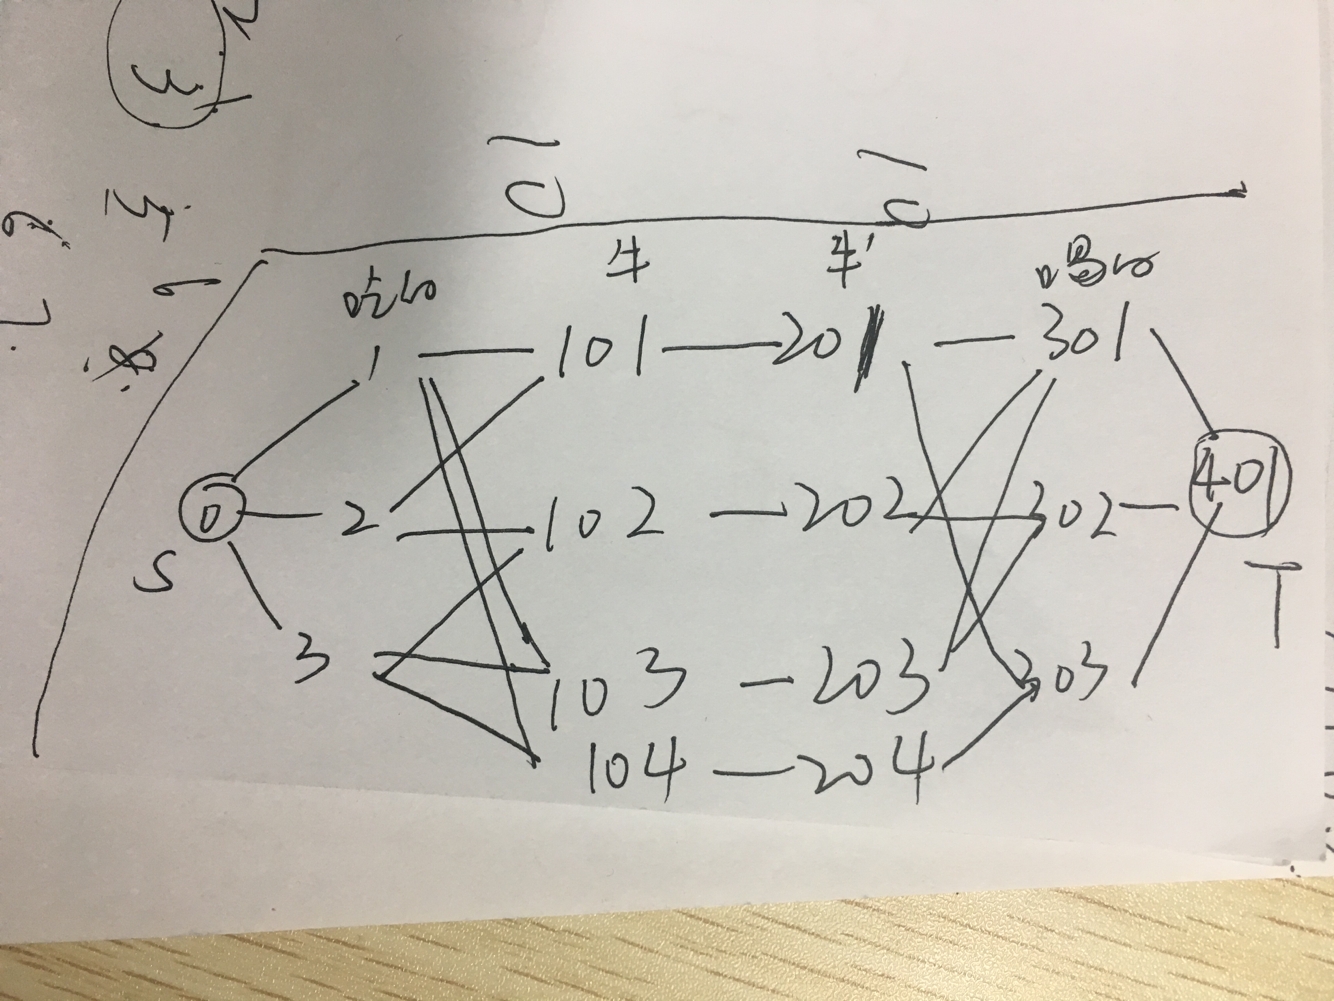 吃的 牛 牛' 喝的
1 101 201 301
0 2 102 202 302 401
S T
3 103 203 303
104 204